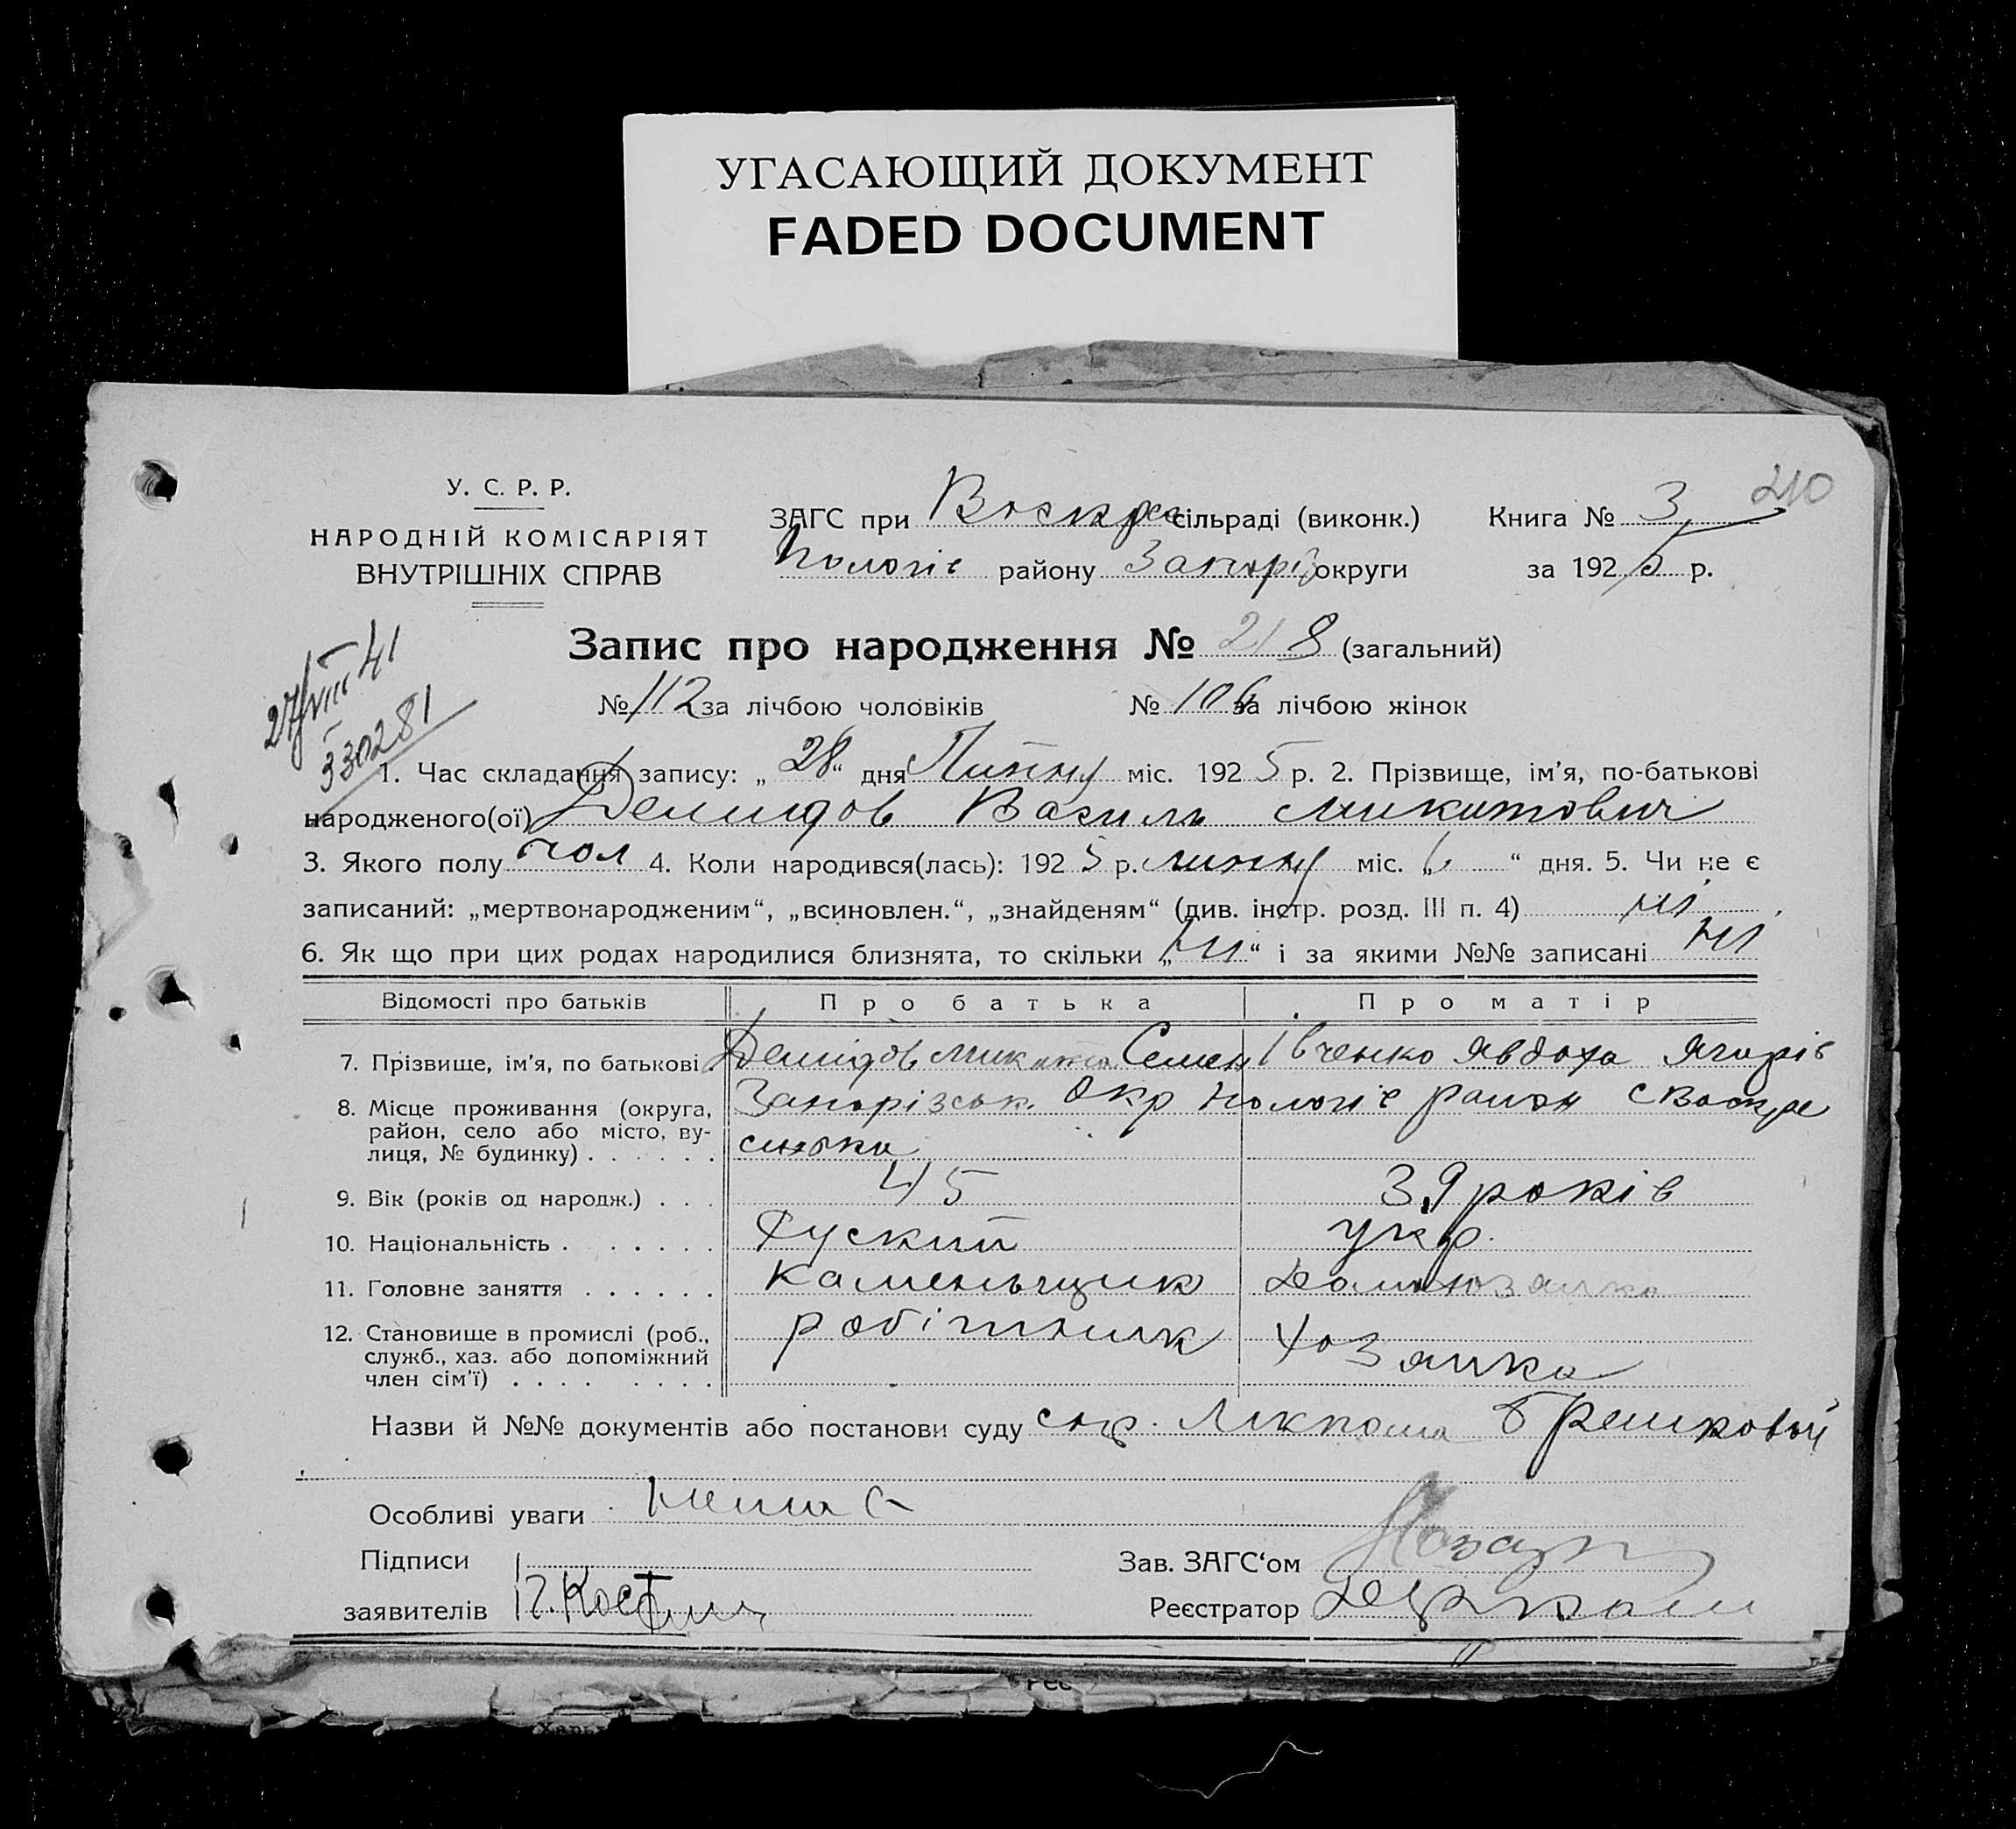 УГАСАЮЩИЙ ДОКУМЕНТ
FADED DOCUMENT
210
У. С. Р. Р.
НАРОДНІЙ КОМІСАРІЯТ
ВНУТРІШНІХ СПРАВ
ЗАГС при Воскрес сільраді (виконк.) Книга № 3
Пологів району Запоріз округи за 1925 р.
27/VIII 41
330281
Запис про народження № 218 (загальний)
№ 112 за лічбою чоловіків № 106 за лічбою жінок
1. Час складання запису: „28“ дня Липня міс. 1925 р. 2. Прізвище, ім’я, по-батькові
народженого(ої) Демидов Василь Микитович
3. Якого полу чол 4. Коли народився(лась): 1925 р. липня міс. „6 “ дня. 5. Чи не є
записаний: „мертвонародженим“, „всиновлен.“, „знайденям“ (див. інстр. розд. III п. 4) ні
6. Як що при цих родах народилися близнята, то скільки „ні“ і за якими №№ записані ні
Відомості про батьків Про батька Про матір
7. Прізвище, ім’я, по батькові . Демідов Микита Семен Івченко Явдоха Ягорів
8. Місце проживання (округа, район, село або місто, вулиця, № будинку) . . . . . . Запорізськ. Окр Пологів район с Воскре
синька
9. Вік (років од народж.) . . . 45 39 років
10. Національність . . . . . . . Руский укр.
11. Головне заняття . . . . . . каменьщик домохозяйка
12. Становище в промислі (роб., служб., хаз. або допоміжний член сім’ї) . . . . . . . . робітник хозяйка
Назви й №№ документів або постанови суду
Особливі уваги нема
Підписи
заявителів
Зав. ЗАГС‘ом
Реєстратор